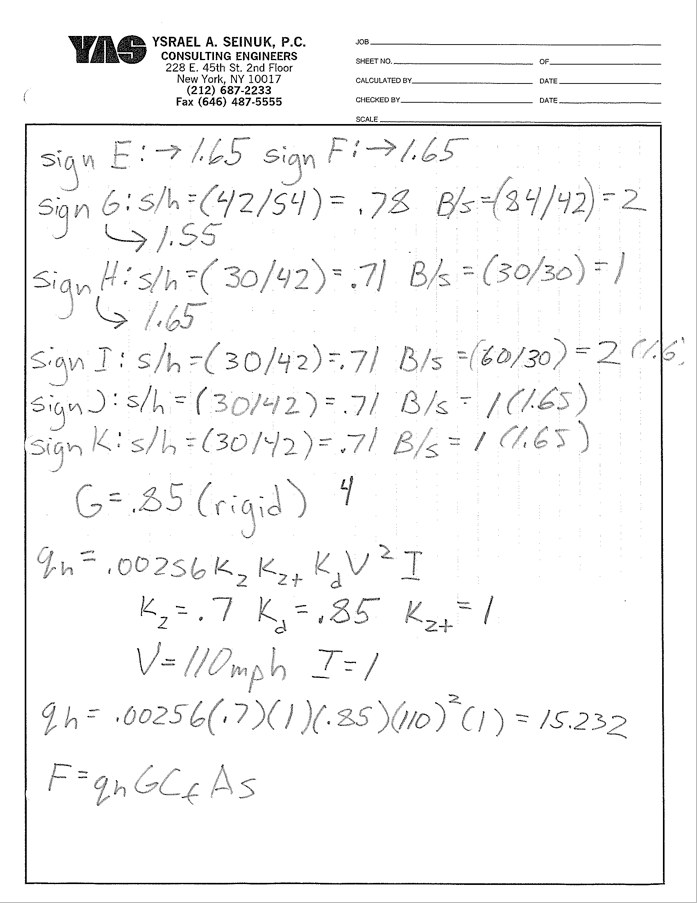 YAS YSRAEL A. SEINUK, P.C.
CONSULTING ENGINEERS
228 E. 45th St. 2nd Floor
New York, NY 10017
(212) 687-2233
Fax (646) 487-5555
JOB
SHEET NO. OF
CALCULATED BY DATE
CHECKED BY DATE
SCALE
sign E: → 1.65 sign F: → 1.65
sign G: s/h = (42/54) = .78 B/s = (84/42) = 2
↳ 1.55
sign H: s/h = (30/42) = .71 B/s = (30/30) = 1
↳ 1.65
sign I: s/h = (30/42) = .71 B/s = (60/30) = 2 (1.6
sign J: s/h = (30/42) = .71 B/s = 1 (1.65)
sign K: s/h = (30/42) = .71 B/s = 1 (1.65)
G = .85 (rigid) 4
qh = .00256 Kz Kzt Kd V² I
Kz = .7 Kd = .85 Kzt = 1
V = 110 mph I = 1
qh = .00256(.7)(1)(.85)(110)²(1) = 15.232
F = qh G Cf As